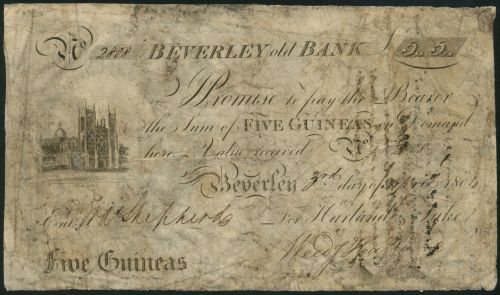 No 2808 BEVERLEY old BANK £5,,5,,
I Promise to pay the Bearer
the Sum of FIVE GUINEAS on Demand
here Value received
Beverley 3rd day of 180
Shepherd For Harland
Five Guineas